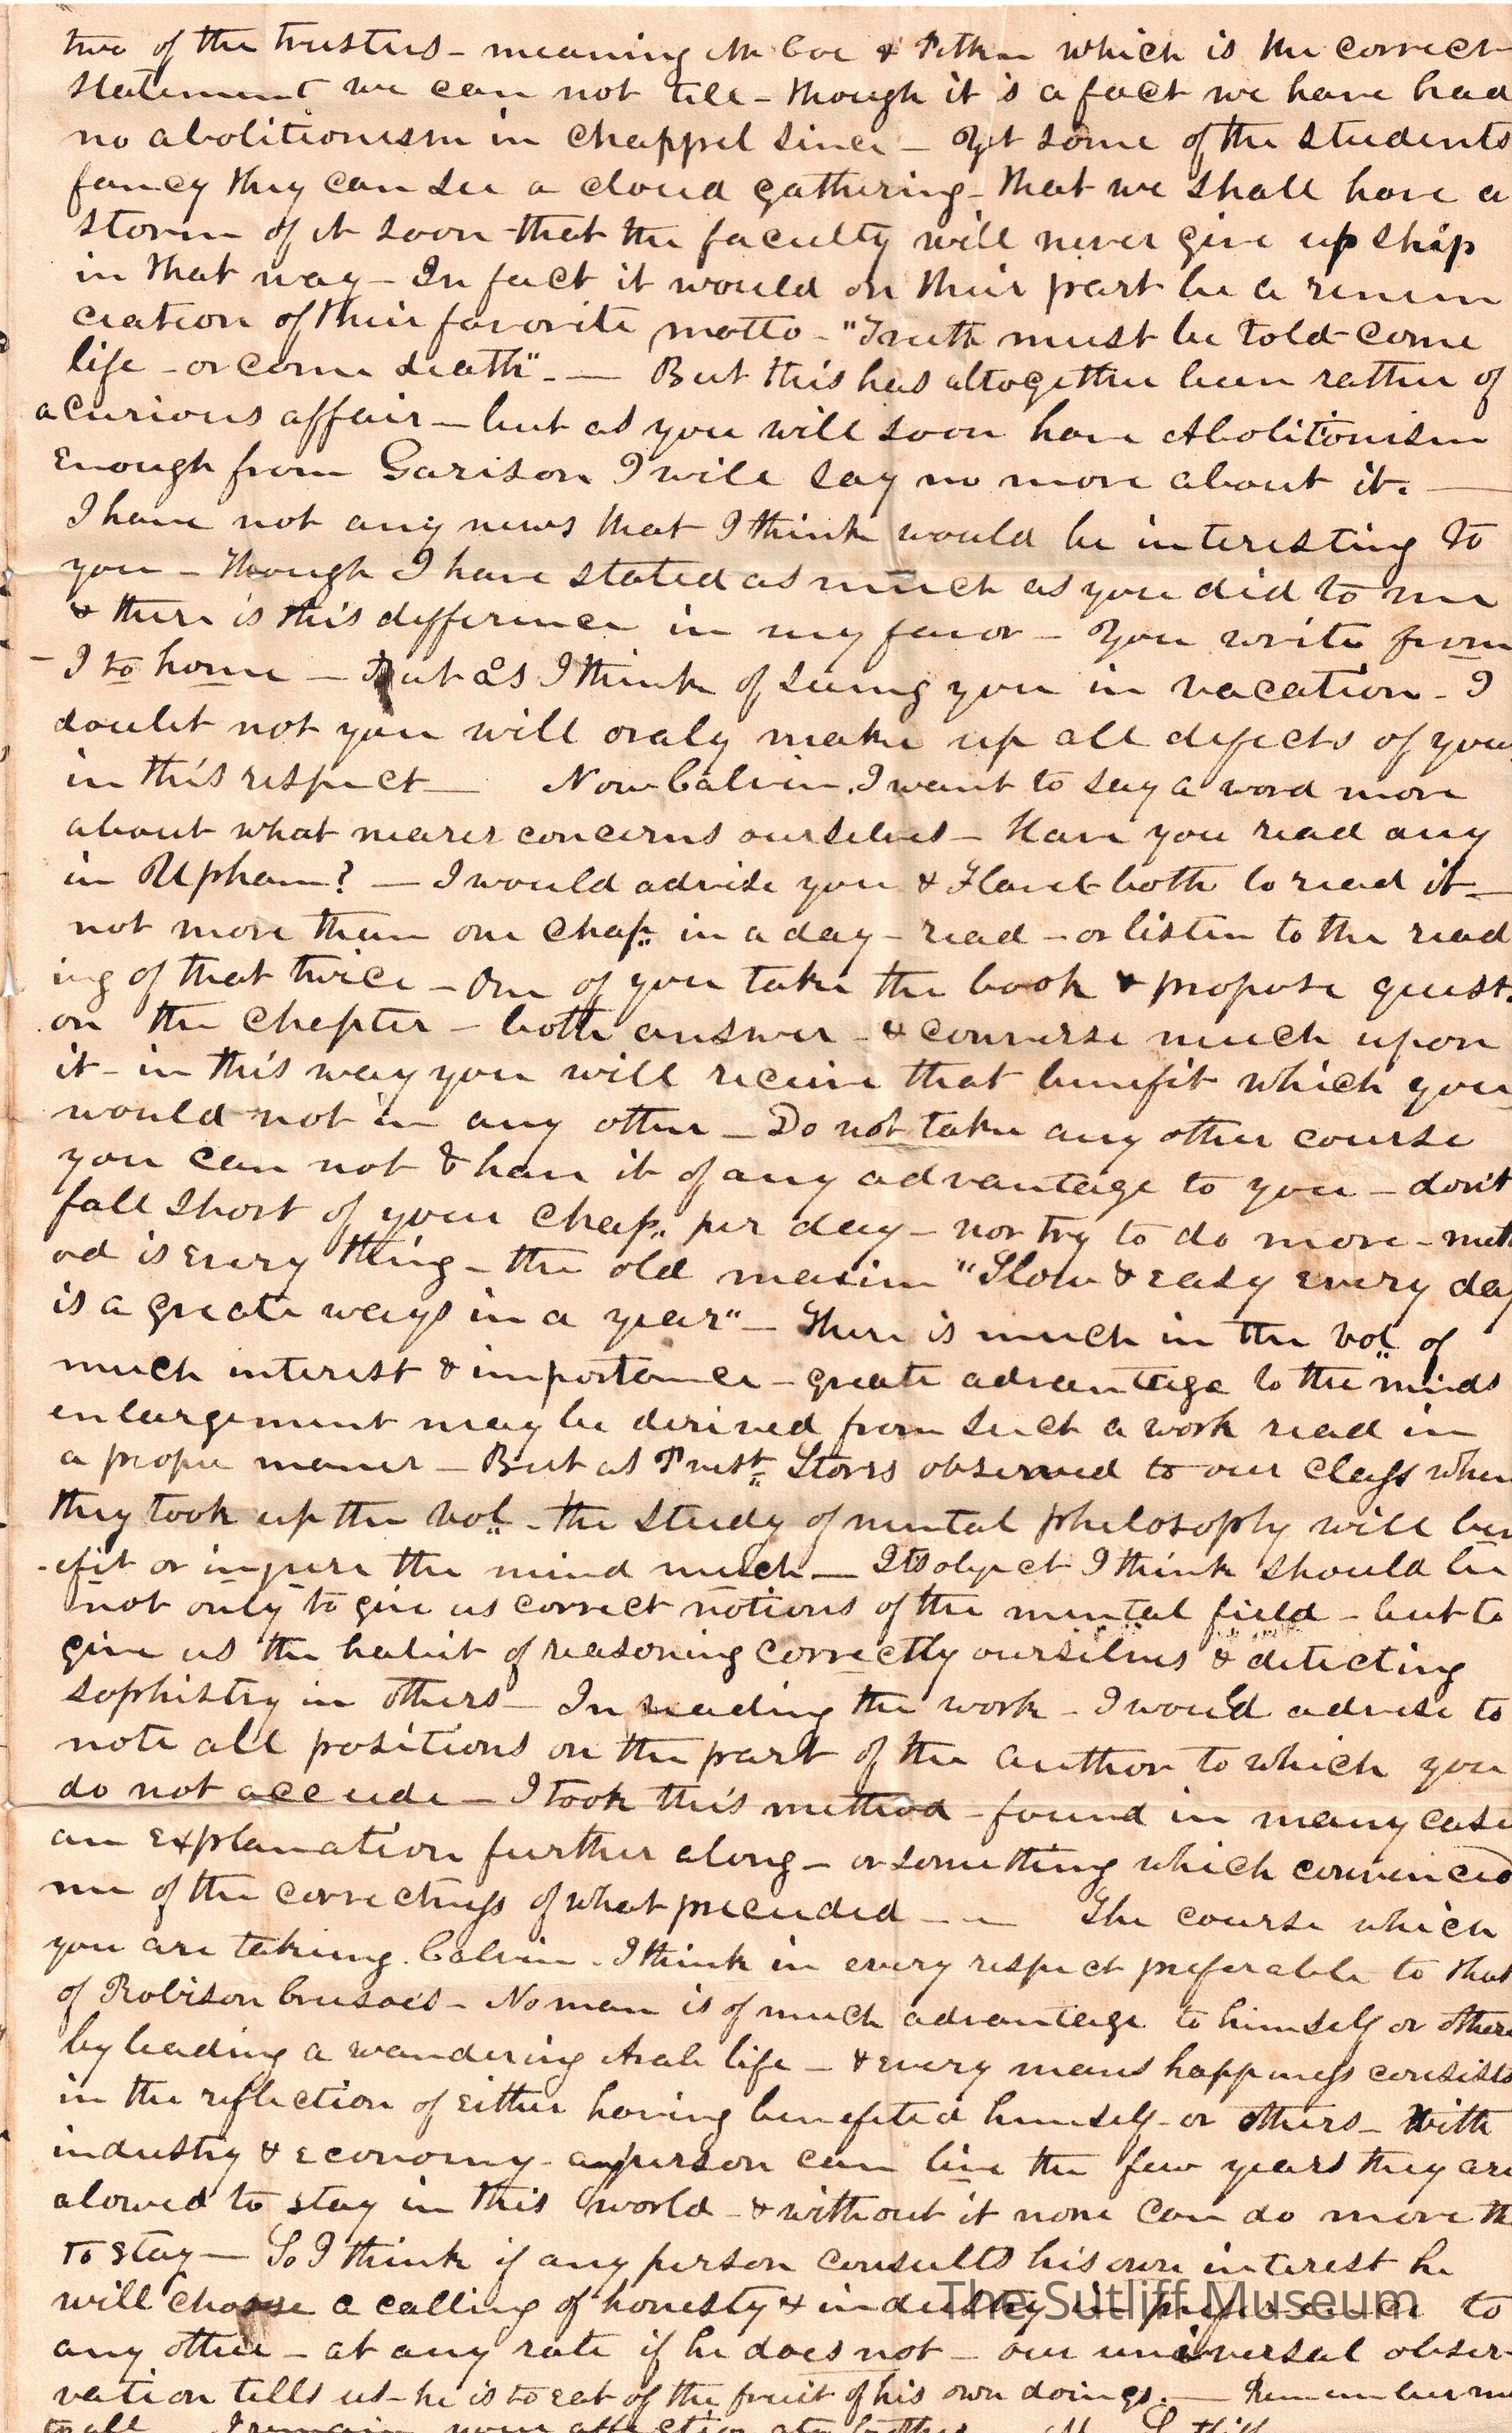 two of the trustees - meaning Mr Coe & Pitkin which is the correct
statement we can not tell - though it is a fact we have had
no abolitionism in chappel since - Yet some of the students
fancy they can see a cloud gathering - that we shall have a
storm of it soon - that the faculty will never give up ship
in that way - In fact it would on their part be a renun
ciation of their favorite motto - "Truth must be told - come
life - or come death". — But this has altogether been rather of
a curious affair - but as you will soon have Abolitonism
Enough from Garison I will say no more about it. —
I have not any news that I think would be interesting to
you - though I have stated as much as you did to me
& there is this difference in my favor - You write from
- I to home - But as I think of seeing you in vacation - I
doubt not you will oraly make up all defects of your
in this respect — Now Calvin, I want to say a word more
about what nearer concerns ourselves - Have you read any
in Upham? — I would advise you & Flavel both to read it —
not more than one Chap. in a day - read - or listen to the read
ing of that twice - One of you take the book & propose quest.
on the chapter - both answer - & converse much upon
it - in this way you will receive that benefit which you
would not in any other - Do not take any other course
you can not & have it of any advantage to you - don't
fall short of your Chap. per day - nor try to do more - meth
od is every thing - the old maxim "Slow & easy every day
is a greate ways in a year" - There is much in the vol. of
much interest & importance - greate advantage to the minds
enlargement may be derived from such a work read in
a proper maner - But as Prest. Storrs observed to our class when
they took up the vol. - the study of mental philosophy will ben
-efit or injure the mind much — Its object I think should be
not only to give us correct notions of the mental field - but to
give us the habit of reasoning correctly ourselves & detecting
sophistry in others - In reading the work - I would advise to
note all positions on the part of the author to which you
do not accede - I took this method - found in many case
an explanation further along - or something which convinced
me of the correctness of what preceeded - — The course which
you are taking Calvin - I think in every respect preferable to that
of Robison Crusoe's - No man is of much advantage to himself or others
by leading a wandering Arab life - & every mans happiness consists
in the reflection of either having benefited himself - or others - With
industry & economy - any person can live the few years they are
alowed to stay in this world - & without it none can do more th
to stay - So I think if any person consults his own interest he
will choose a calling of honesty & industry in preference to
any other - at any rate if he does not - our universal obser-
vation tells us - he is to eat of the fruit of his own doings. — Remember me
to all I remain your affectionate brother
The Sutliff Museum